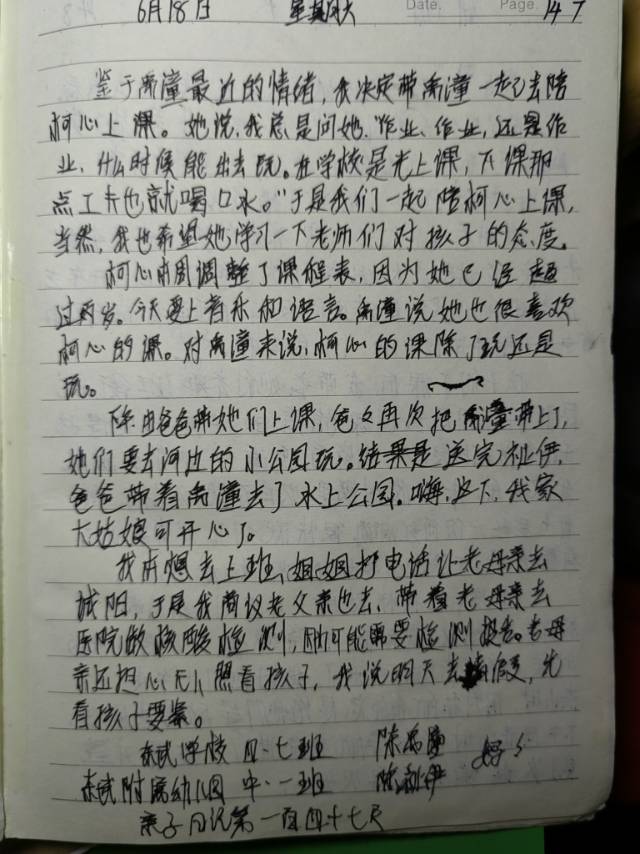 Date. Page.
6月18日 星期四 147
鉴于禹潼最近的情绪，我决定带禹潼一起去陪
柯心上课。她说，我总是问她"作业、作业，还是作
业，什么时候能出去玩。在学校是光上课，下课那
点工夫也就喝口水。"于是我们一起陪柯心上课，
当然，我也希望她学习一下老师们对孩子的态度。
柯心本周调整了课程表，因为她已经超
过两岁。今天要上音乐和语言。禹潼说她也很喜欢
柯心的课。对禹潼来说，柯心的课除了玩还是
玩。
爸爸带她们上课，爸爸再次把禹潼带上了，
她们要去河边的小公园玩。结果是送完祉伊，
爸爸带着禹潼去了水上公园。嗨，这下，我家
大姑娘可开心了。
我本想去上班，姐姐打电话让老母亲去
城阳，于是我商议老父亲也去，带着老母亲去
医院做核酸检测，因为可能需要检测报告。老母
亲还担心无人照看孩子，我说明天去请假，先
看孩子要紧。
学校 四·七班 陈禹潼
附属幼儿园 中·一班 陈祉伊
亲子日记第一百四十七天